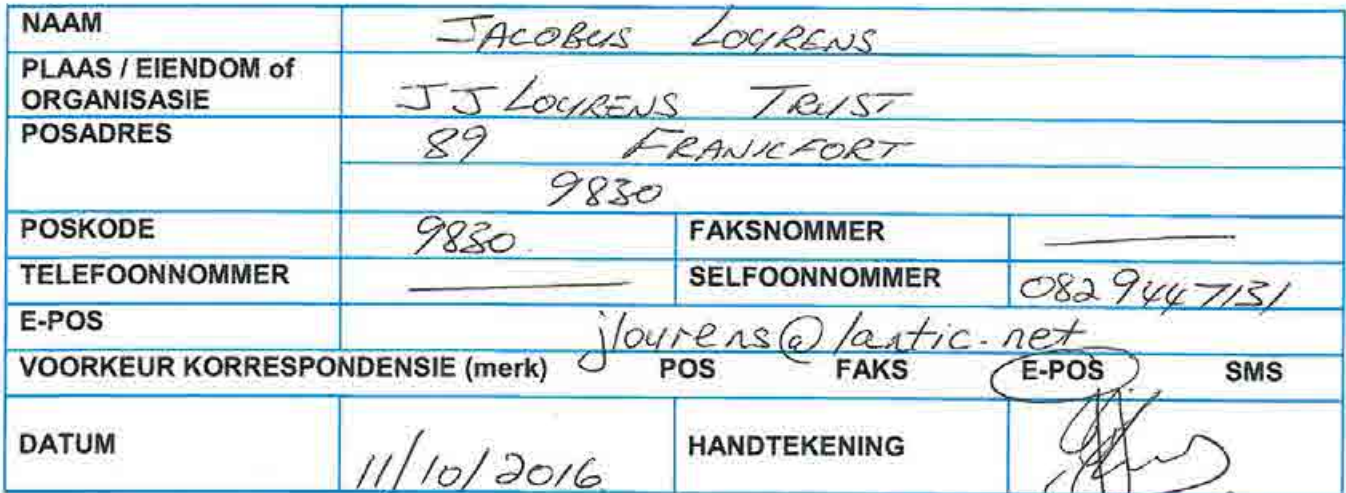 NAAM JACOBUS LOURENS
PLAAS / EIENDOM of
ORGANISASIE JJ LOURENS TRUST
POSADRES 89 FRANKFORT
9830
POSKODE 9830. FAKSNOMMER
TELEFOONNOMMER SELFOONNOMMER 0829447131
E-POS jlourens@lantic.net
VOORKEUR KORRESPONDENSIE (merk) POS FAKS E-POS SMS
DATUM 11/10/2016 HANDTEKENING